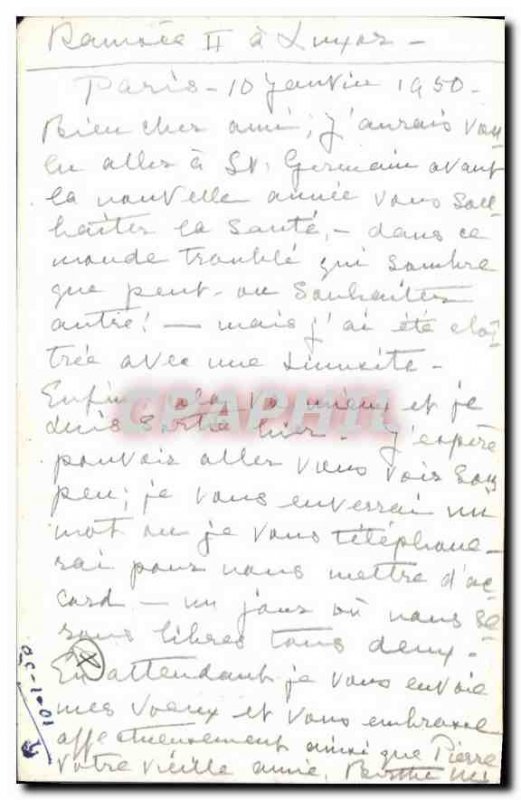 Ramsès II à Luxor -
Paris - 10 Janvier 1950 -
Bien cher ami, j'aurais vou-
lu aller à St. Germain avant
la nouvelle année vous sou-
haiter la santé, - dans ce
monde troublé qui sombre
que peut-on souhaiter
autre! - mais j'ai été cloî-
trée avec une sinusite -
Enfin cela va mieux et je
suis sortie hier. J'espère
pouvoir aller vous voir sous
peu; je vous enverrai un
mot ou je vous téléphone-
rai pour nous mettre d'ac-
cord - un jour où nous se-
rons libres tous deux.
En attendant je vous envoie
mes voeux et vous embrasse
affectueusement ainsi que Pierre
Votre vieille amie, Berthe
10-1-50
CPAPHIL